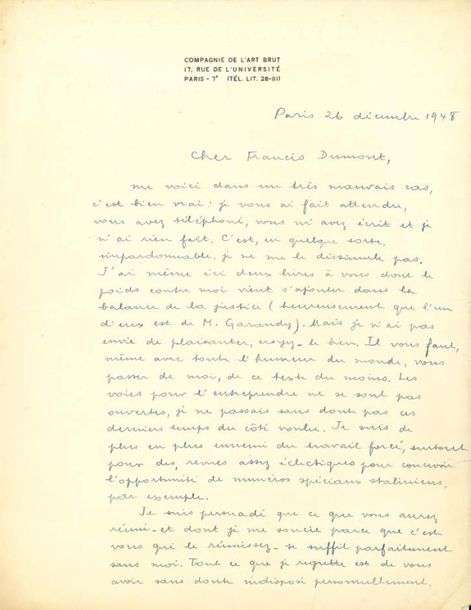 COMPAGNIE DE L'ART BRUT
17, RUE DE L'UNIVERSITÉ
PARIS - 7e (TÉL. LIT. 28-91)
Paris 26 décembre 1948
Cher Francis Dumont,
me voici dans un très mauvais cas,
c'est bien vrai : je vous ai fait attendre,
vous avez téléphoné, vous m'avez écrit et je
n'ai rien fait. C'est, en quelque sorte,
impardonnable, je ne me le dissimule pas.
J'ai même ici deux livres à vous dont le
poids contre moi vient s'ajouter dans la
balance de la justice (heureusement que l'un
d'eux est de M. Garaudy). Mais je n'ai pas
envie de plaisanter, croyez-le bien. Il vous faut,
même avec toute l'humeur du monde, vous
passer de moi, de ce texte du moins. Les
voies pour l'entreprendre ne se sont pas
ouvertes, je ne passais sans doute pas ces
derniers temps du côté voulu. Je suis de
plus en plus ennemi du travail forcé, surtout
pour des revues assez éclectiques pour concevoir
l'opportunité de numéros spéciaux staliniens
par exemple.
Je suis persuadé que ce que vous aurez
réuni - et dont je me soucie parce que c'est
vous qui le réunissez - se suffit parfaitement
sans moi. Tout ce que je regrette est de vous
avoir sans doute indisposé personnellement.